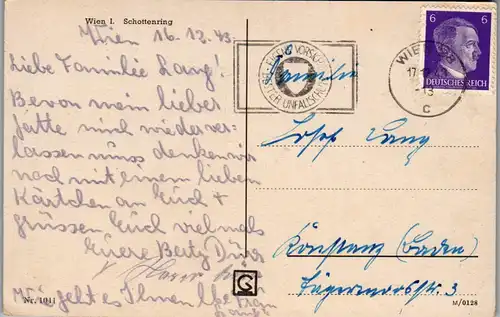 Wien I. Schottenring
Wien 16.12.43
Liebe Familie Lang!
Bevor mein lieber
Gatte mich wieder ver-
lassen muss denken wir
noch mit einem lieben
Kärtchen an Euch +
grüssen Euch vielmals
Euere Berty
Wie geht es Ihnen
Nr. 1041
VORSICHT
UNFALLSCHUTZ
WIEN
17
C
6 6
DEUTSCHES REICH
Familie
Josef Lang
Konstanz (Baden)
Jägermoosstr. 3
G
M/0128